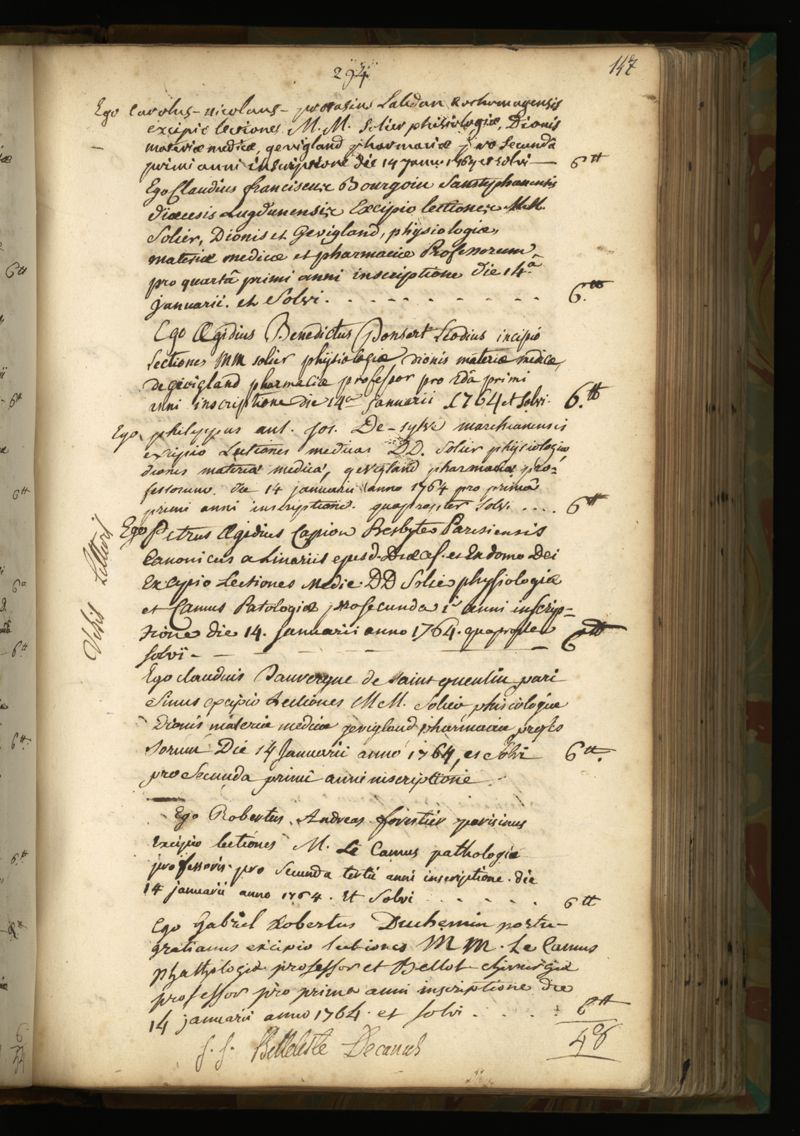 294
147
Ego Carolus-nicolaus- Rothomagensis
excipio lectiones M.M. Solier phisiologiæ, Dionis
materiæ medicæ, gevigland pharmaciæ pro secundâ
primi anni inscriptione die 14 Januarii 1764 et solvi — 6 tt
Ego Claudius franciscus Bourgoin
diœcesis Lugdunensis Excipio lectiones MM.
Solier, Dionis et Gevigland, physiologiæ,
materiæ medicæ et pharmaciæ Professorum
pro quartâ primi anni inscriptione die 14.a
januarii. et Solvi. - - - - - - - - 6. tt
Ego Ægidius Benedictus Ponsart Leodius incipio
Lectiones MM solier physiologiæ dionis materiæ medicæ,
De gevigland pharmaciæ professor pro 2da primi
anni inscriptione die 14a Januarii 1764 et solvi. 6. tt
Ego, philippus ant. jos. De-sylve marchianensis
excipio Lectiones medicas DD. Solier physiologiæ,
dionis materiæ medicæ, gevigland pharmaciæ pro-
fessorum. die 14 januarii anno 1764 pro primâ
primi anni inscriptione. quapropter Solvi . . . . 6 tt
Ego Petrus Ægidius Capion Presbyter Parisiensis
Canonicus a Linariis
Excipio Lectiones Medic DD Solier physiologiæ
et Camus Patologiæ pro secunda 1i anni inscrip-
tione die 14. Januarii anno 1764. quapropter
solvi - - - - 6 tt
Ego claudius Dauvergne de saint quentin pari
sinus excipio Lectiones M M. Solier phisiologiæ
Dionis materiæ medicæ gevigland pharmaciæ profes
sorum Die 14 Januarii anno 1764, et solvi 6 tt.
pro Secunda primi anni inscriptione
Ego Robertus Andreas forestier parisinus
excipio lectiones M. Le Camus pathologiæ
professoris. pro secunda tertii anni inscriptione. die
14 januarii anno 1764. et Solvi . . . . . . 6 tt
Ego Gabriel Robertus Duchemin
excipio lectiones M M. Le Camus
phathologiæ professor et Bellot chirurgiæ
professor pro prima anni inscriptione die
14 januarii anno 1764. et solvi . . . . 6 tt
48
Belleteste Decanus